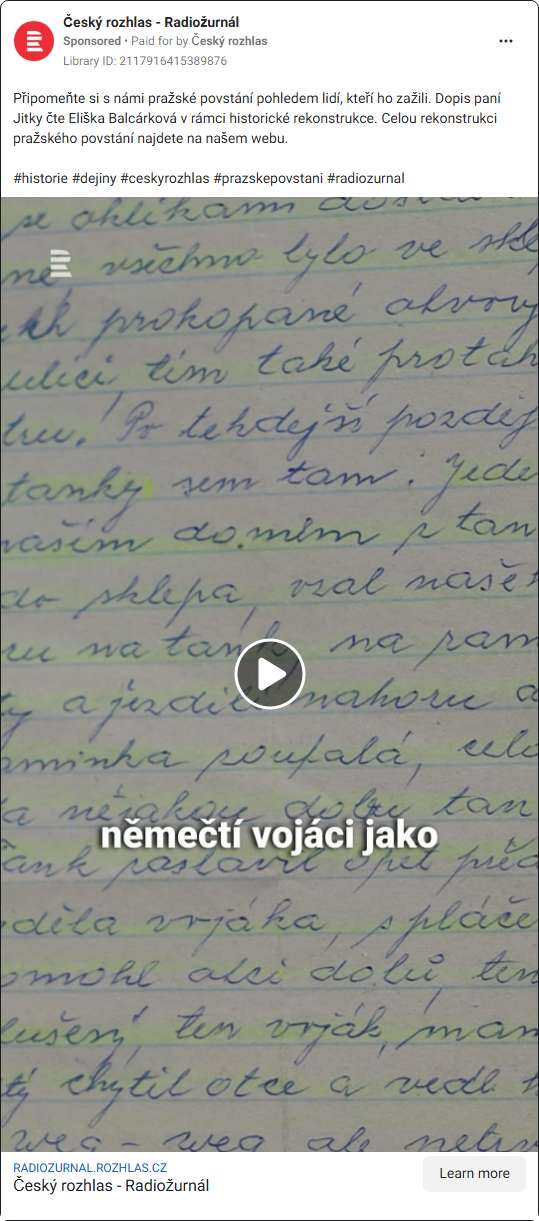 Český rozhlas - Radiožurnál
Sponsored • Paid for by Český rozhlas
Library ID: 2117916415389876
Připomeňte si s námi pražské povstání pohledem lidí, kteří ho zažili. Dopis paní
Jitky čte Eliška Balcárková v rámci historické rekonstrukce. Celou rekonstrukci
pražského povstání najdete na našem webu.
#historie #dejiny #ceskyrozhlas #prazskepovstani #radiozurnal
se oklikami
všechno bylo ve
prokopané otvory
ulici, tím také
Po tehdejší
tanky sem tam. Jede
naším domem
do sklepa, vzal naše
na tank, na
a jezdil nahoru a
aminka zoufalá,
nějakou dobu tan
němečtí vojáci jako
zastavil opět
děla vojáka, s pláče
omohl otci dolů, ten
ten voják,
chytil otce a vedl
weg - weg ale
RADIOZURNAL.ROZHLAS.CZ
Český rozhlas - Radiožurnál
Learn more